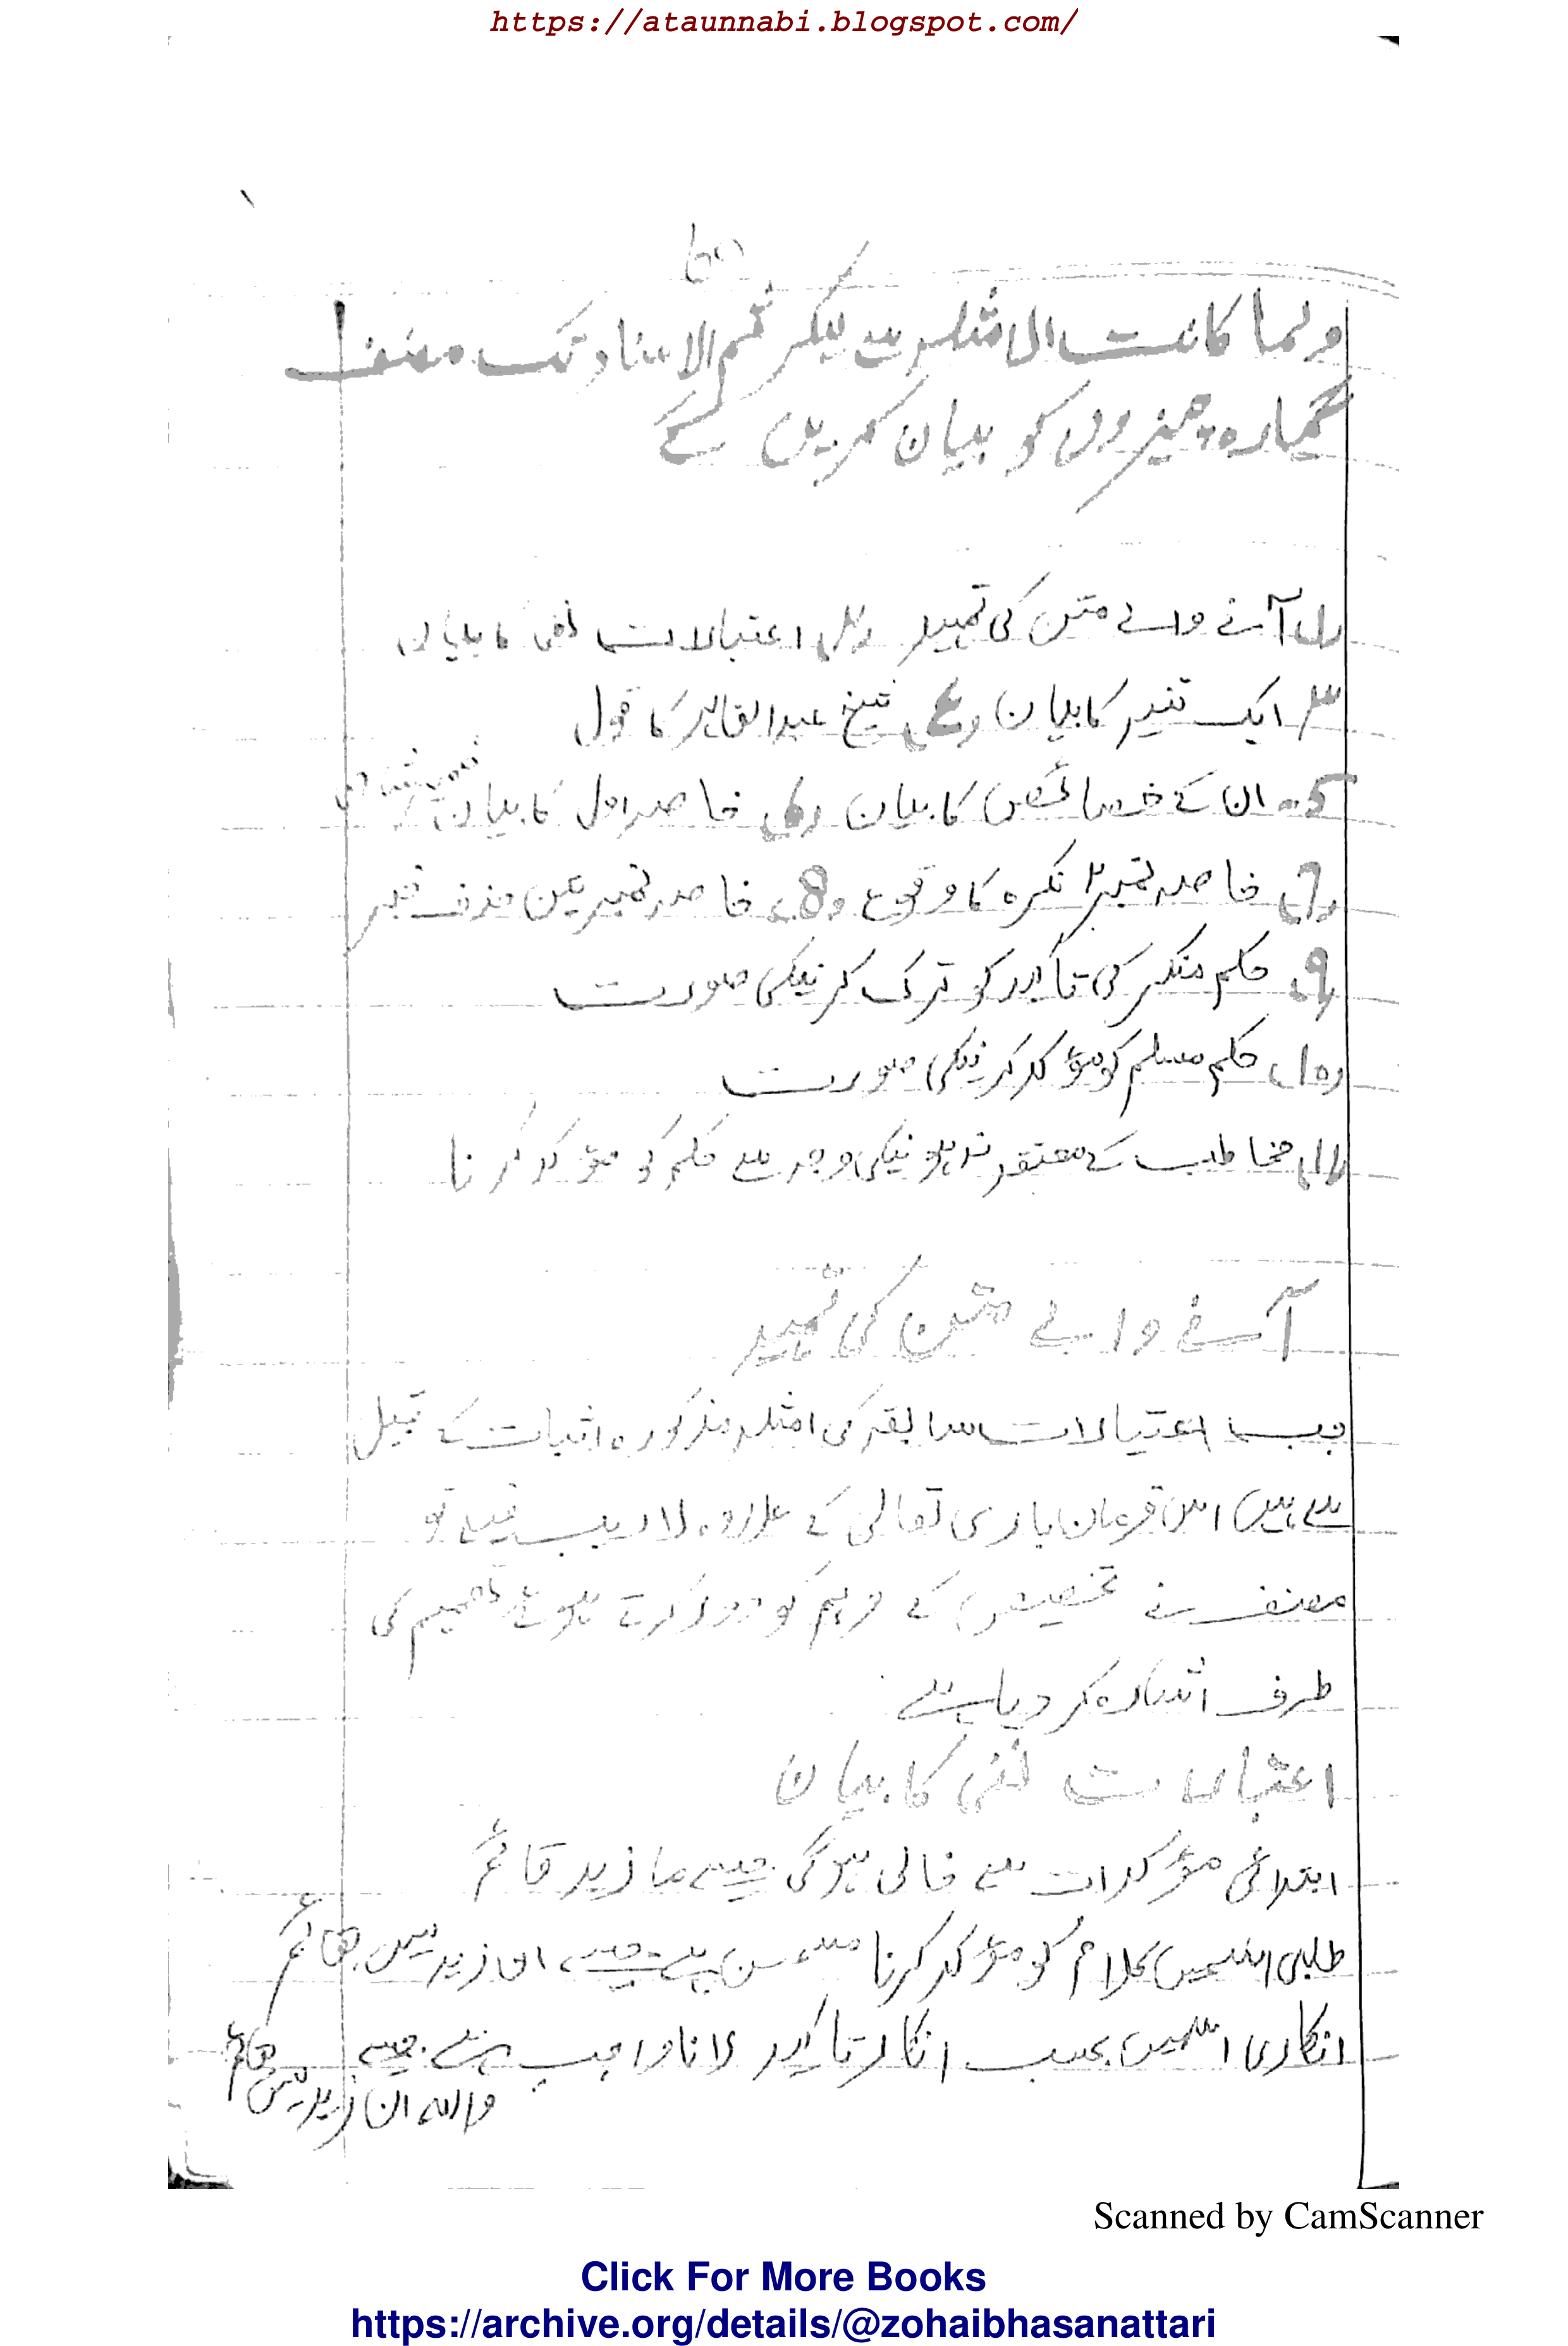 https://ataunnabi.blogspot.com/
ولما کانت الامثلہ سے لیکر ثم الاسناد تک مصنف
گیارہ چیزوں کو بیان کریں گے
(1) آنے والے متن کی تمہید (2) اعتبارات نفی کا بیان
3 ایک تنبیہ کا بیان (4) شیخ عبدالقاہر کا قول
5۔ ان کے خصائص کا بیان (6) خاصہ اول کا بیان
(7) خاصہ نمبر 2 نکرہ کا وقوع (8) خاصہ نمبر تین حذف خبر
(9) حکم منکر کی تاکید کو ترک کرنیکی صورت
(10) حکم مسلم کو مؤکد کرنیکی صورت
(11) مخاطب کے معتقد نہ ہونیکی وجہ سے حکم کو مؤکد کرنا
آنے والے متن کی تمہید
جب اعتبارات سابقہ کی امثلہ مذکورہ اثبات کے قبیل
سے ہیں اس فرمان باری تعالی کے علاوہ لا ریب فیہ تو
مصنف نے تخصیص کے وہم کو دور کرتے ہوئے تعمیم کی
طرف اشارہ کر دیا ہے
اعتبارات نفی کا بیان
ابتدائی مؤکدات سے خالی ہوگی جیسے ما زید قائم
طلبی اسمیں کلام کو مؤکد کرنا مستحسن ہے جیسے ان زید لیس بقائم
انکاری اسمیں بحسب انکار تاکید لانا واجب ہے جیسے
واللہ ان زید لیس بقائم
Scanned by CamScanner
Click For More Books
https://archive.org/details/@zohaibhasanattari